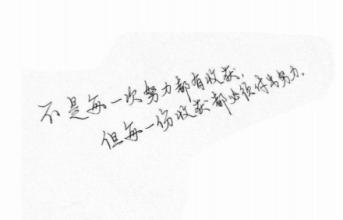 不是每一次努力都有收获，
但每一份收获都必须付出努力.